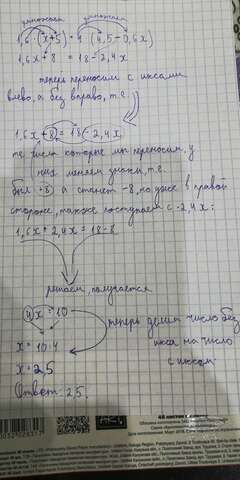 умножаем умножаем
1,6 (x+5) = 4 (4,5 - 0,6x)
1,6x + 8 = 18 - 2,4x
теперь переносим с иксами
влево, а без вправо, т.е.
1,6x + 8 = 18 - 2,4x
те числа которые мы переносим, у
них меняем знаки, т.е.
был +8, а станет -8, но уже в правой
стороне, также поступаем с -2,4x:
1,6x + 2,4x = 18-8
решаем, получается
4x = 10
теперь делим число без
икса на число
с иксом
x = 10:4
x = 2,5
Ответ: 2,5.
48 листов